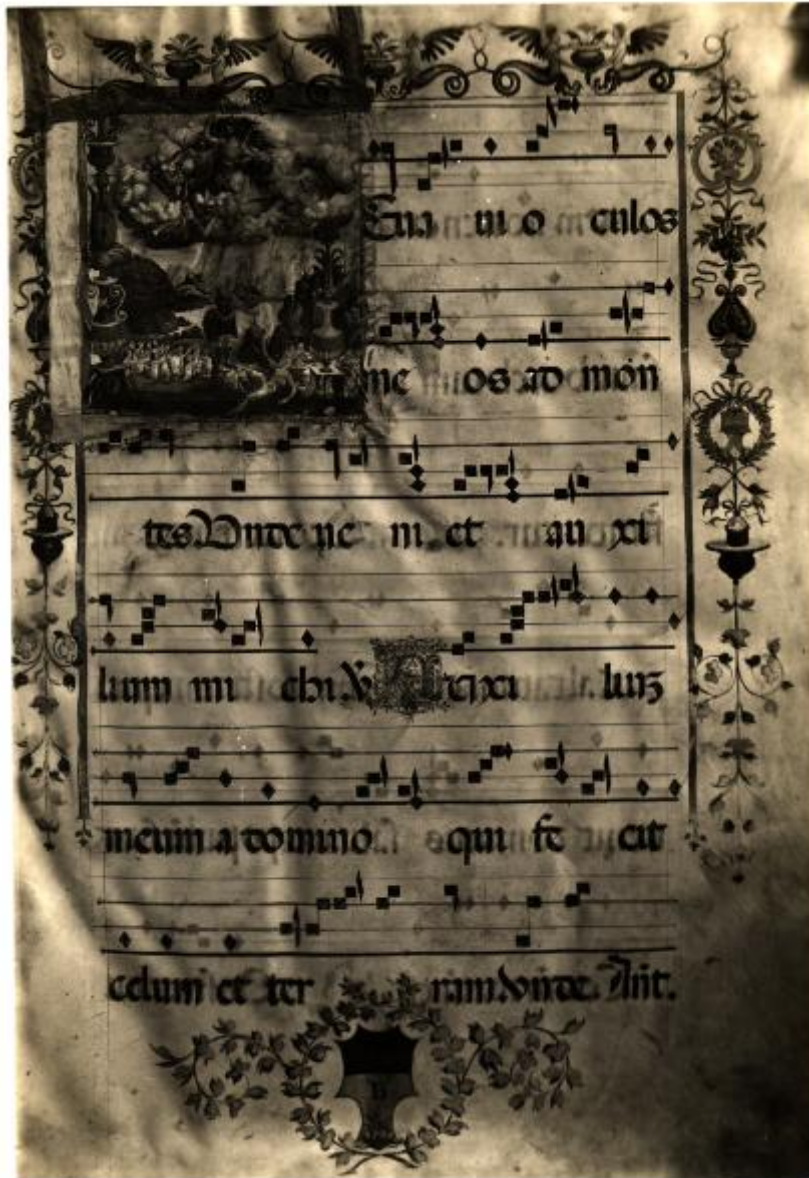 Eua ui o culos
me os ad mon
tes. Unde ue ni et au xi
lium mi chi. V. Auxi lium
meum a domino qui fe cit
celum et ter ram. Unde. Ant.